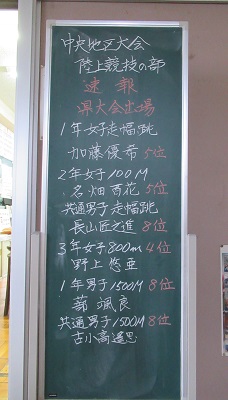 中央地区大会
陸上競技の部
速報
県大会出場
1年女子走幅跳
加藤優希 5位
2年女子100M
名畑百花 5位
共通男子走幅跳
長山匠之進 8位
3年女子800m 4位
野上悠亜
1年男子1500M 8位
颯良
共通男子1500M 8位
古小高遥思